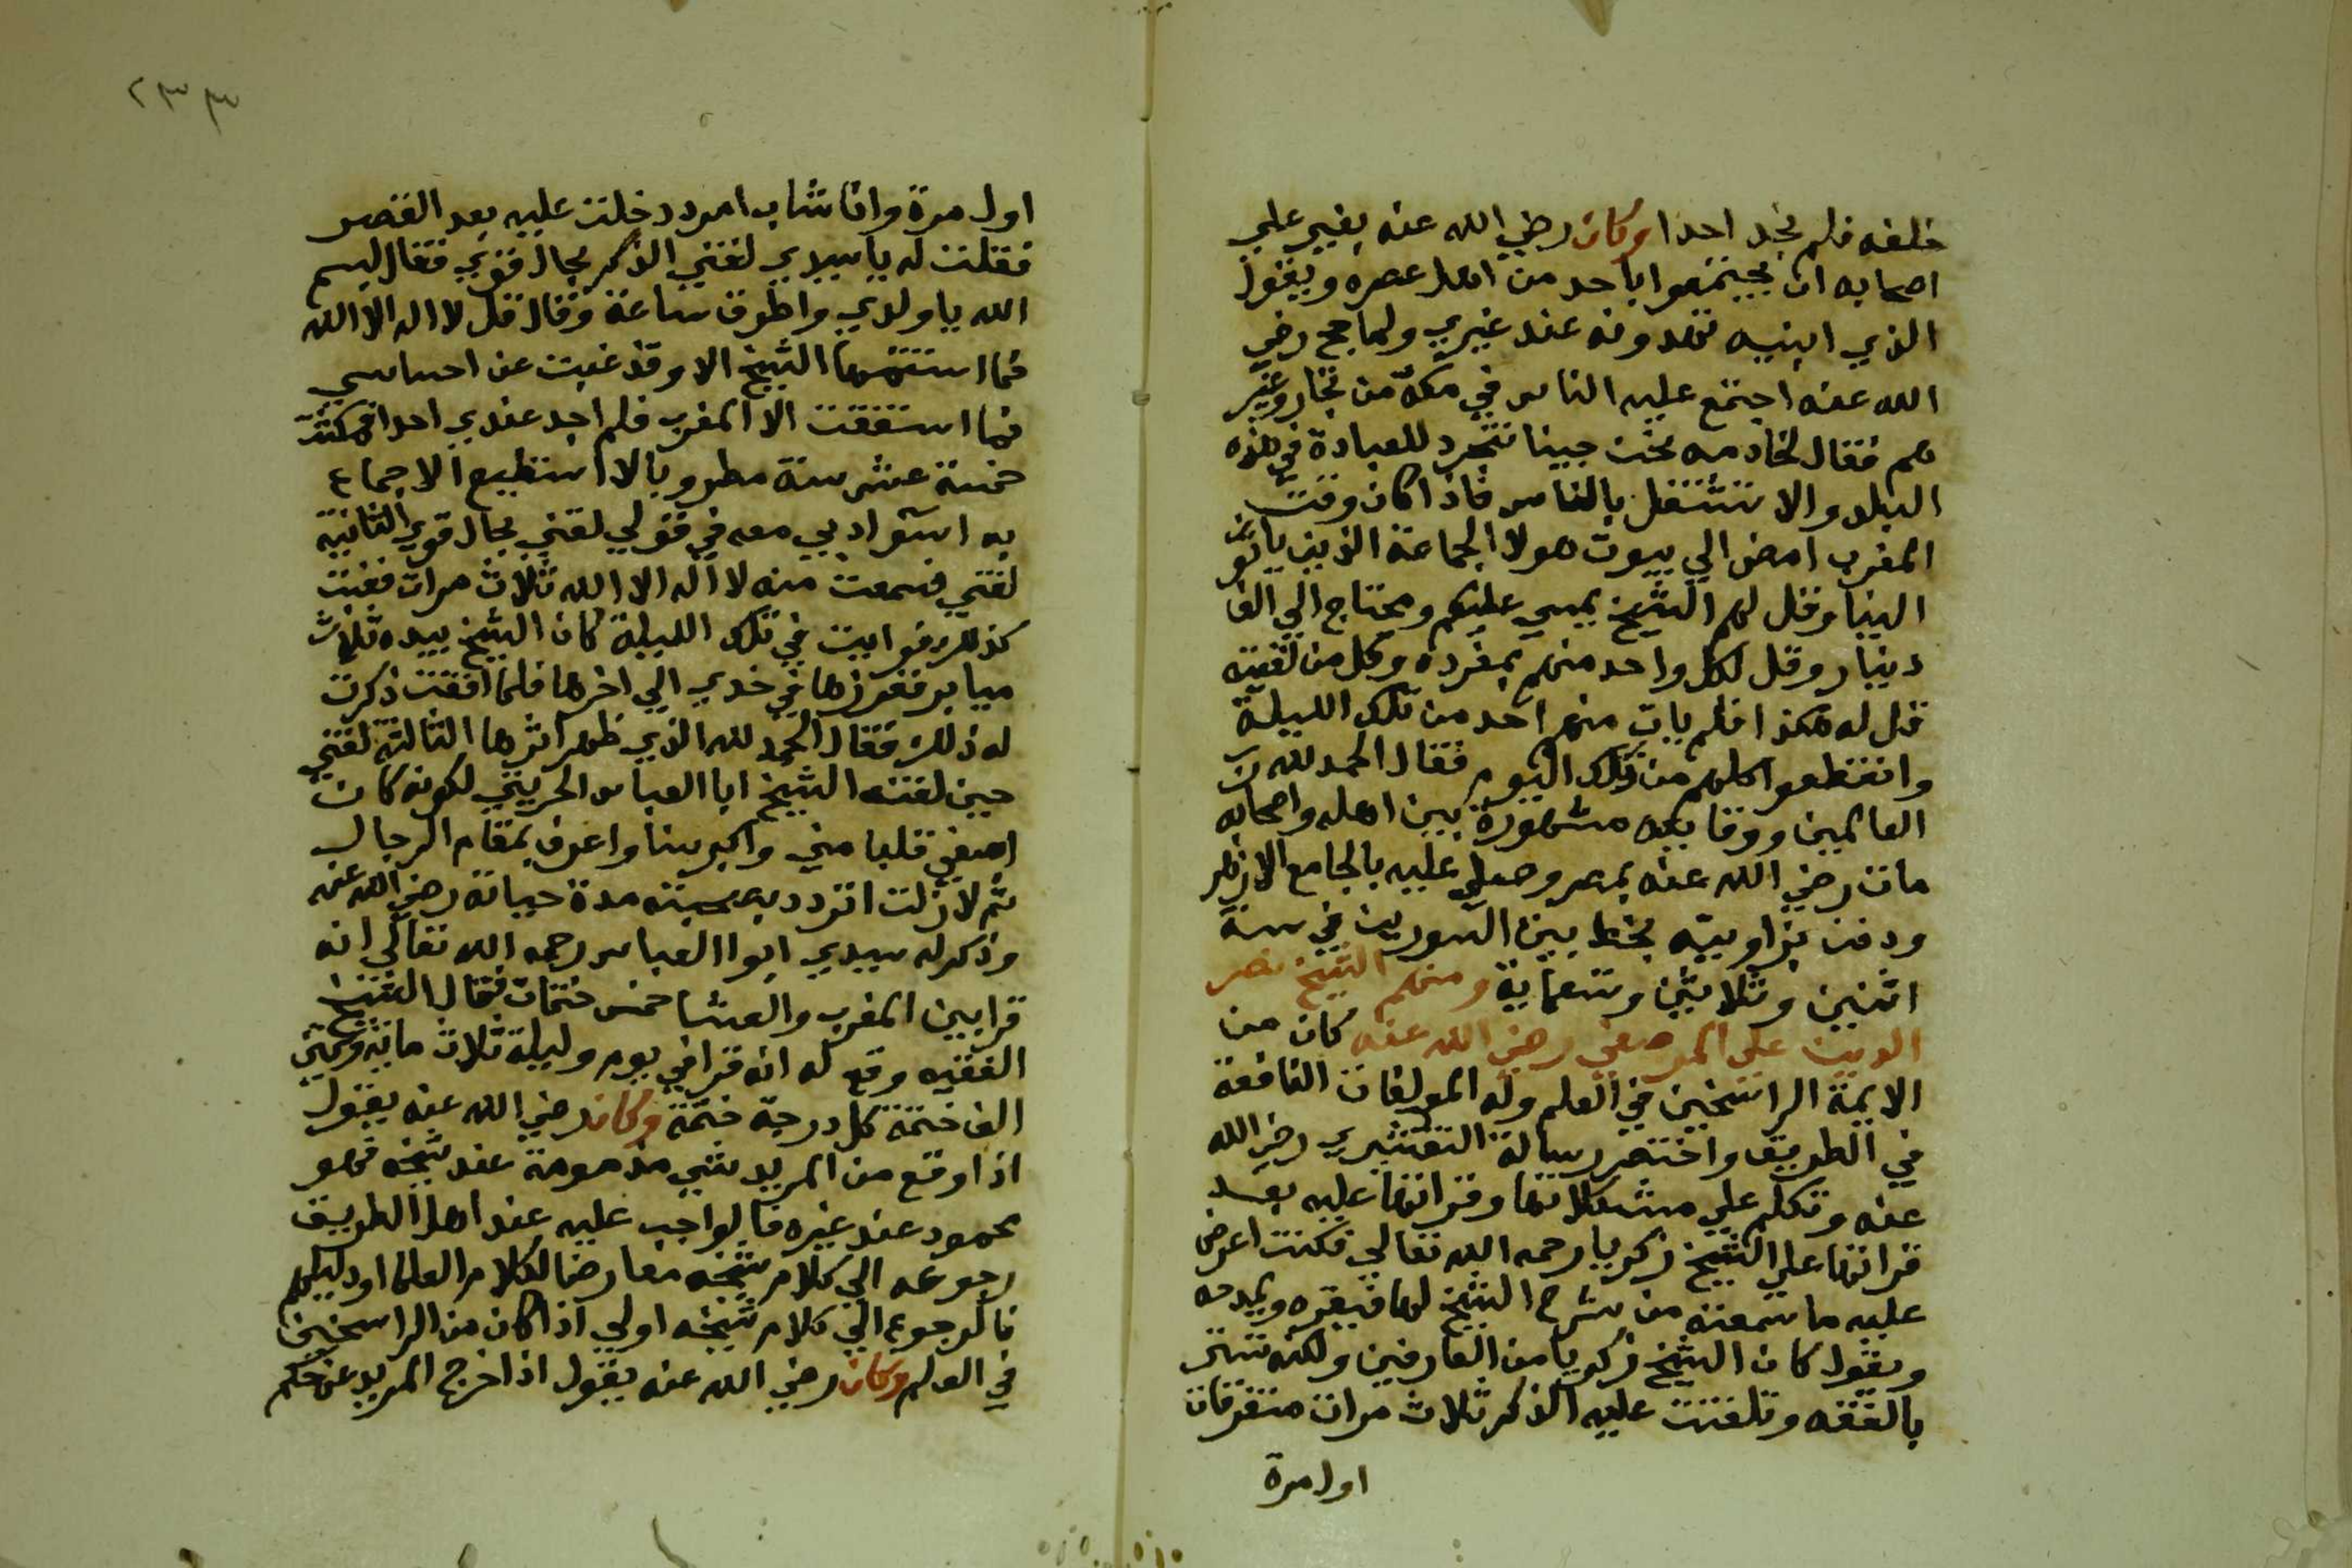 خلفه فلم يجد احدا وكان رضي الله عنه يغير علي
اصحابه ان يجتمعوا باحد من اهل عصره ويقول
الذي ابنيه تهدونه عند غيري ولما حج رضي
الله عنه اجتمع عليه الناس في مكة من تجار وغير
هم فقال لخادمه نحن جينا نتجرد للعبادة في هذه
البلد والا نشتغل بالناس فاذا كان وقت
المغرب امض الي بيوت هولا الجماعة الذين ياتو
الينا وقل لهم الشيخ يمسي عليكم ومحتاج الي الف
دينار وقل لكل واحد منهم بمفرده وكل من لقيته
قل له هكذا فلم يات منهم احد من تلك الليلة
وانقطعوا كلهم من تلك اليوم فقال الحمد لله رب
العالمين ووقايعه مشهورة بين اهله واصحابه
مات رضي الله عنه بمصر وصلي عليه بالجامع الازهر
ودفن بزاويته بخط بين السورين في سنة
اثنين وثلاثين وتسعماية ومنهم الشيخ نصر
الدين علي المرصفي رضي الله عنه كان من
الايمة الراسخين في العلم وله المولفات النافعة
في الطريق واختصر رسالة القشيري رضي الله
عنه وتكلم علي مشكلاتها وقراتها عليه بعد
قراتها علي الشيخ زكريا رحمه الله تعالي فكنت اعرض
عليه ما سمعته من شرح الشيخ لها فيقره ويمدحه
ويقول كان الشيخ زكريا من العارفين ولكنه تستر
بالفقه وتلقنت عليه الذكر ثلاث مرات متفرقات
اول مرة
٢٣٣
اول مرة وانا شاب امرد دخلت عليه بعد العصر
فقلت له يا سيدي لقني الذكر بحال قوي فقال بسم
الله يا ولدي واطرق ساعة وقال قل لا اله الا الله
فما استتمها الشيخ الا وقد غبت عن احساسي
فما استفقت الا المغرب فلم اجد عندي احدا فمكثت
خمسة عشر سنة مطروبا لا استطيع الاجماع
به اسو ادبي معه في قولي لقني بحال قوي الثانية
لقني فسمعت منه لا اله الا الله ثلاث مرات فغبت
كذلك فرايت في تلك الليلة كان الشيخ بيده ثلاث
ميابر فغرزها في خدي الي اخرها فلما افقت ذكرت
له ذلك فقال الحمد لله الذي ظهر اثرها الثالثة لقني
حين لقنه الشيخ ابا العباس الحريثي لكونه كان
اصفي قلبا مني واكبر سنا واعرف بمقام الرجال
ثم لا زلت اتردد بصحبته مدة حياته رضي الله عنه
وذكر له سيدي ابوا العباس رحمه الله تعالي انه
قرا بين المغرب والعشا خمس ختمات فقال الشيخ
الفقيه وقع له انه قرا في يوم وليلة ثلاث ماية وستين
الف ختمة كل درجة ختمة وكان رضي الله عنه يقول
اذا وقع من المريد شي مذمومة عند شيخه فهو
محمود عند غيره فالواجب عليه عند اهل الطريق
رجوعه الي كلام شيخه معارضا لكلام العلما او دليلهم
فالرجوع الي كلام شيخه اولي اذا كان من الراسخين
في العلم وكان رضي الله عنه يقول اذا خرج المريد عن حكم